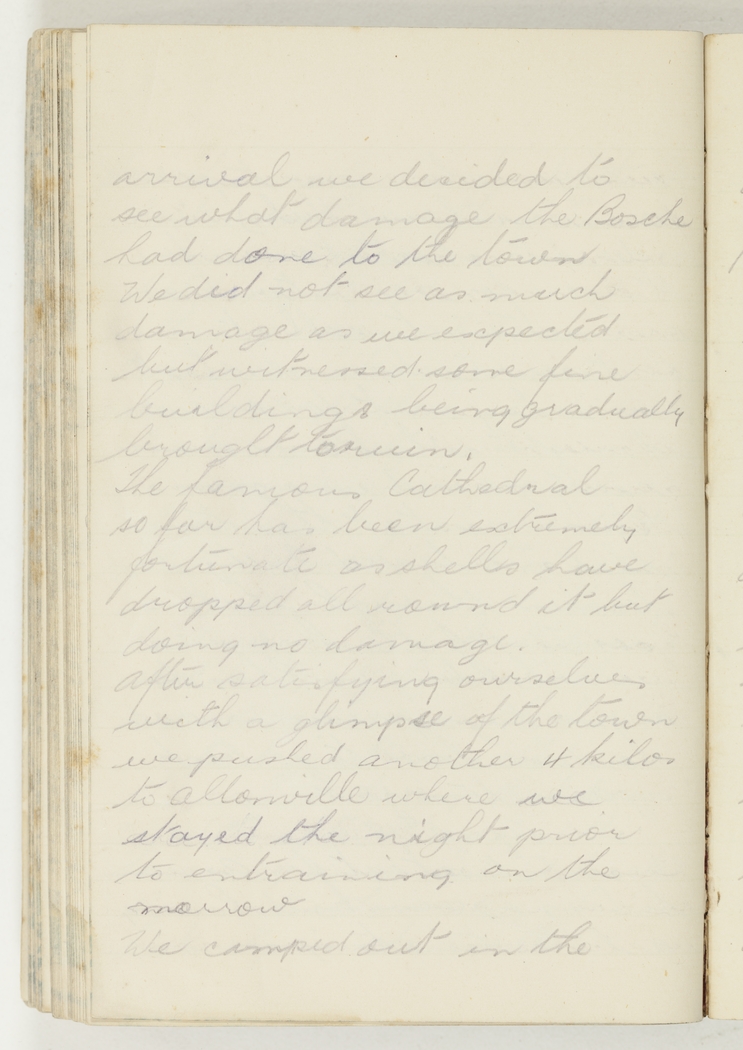 arrival we decided to
see what damage the Bosche
had done to the town
We did not see as much
damage as we expected
but witnessed some fine
buildings being gradually
brought to ruin.
The famous Cathedral
so far has been extremely
fortunate as shells have
dropped all round it but
doing no damage.
After satisfying ourselves
with a glimpse of the town
we pushed another 4 kilos
to Allonville where we
stayed the night prior
to entraining on the
morrow
We camped out in the